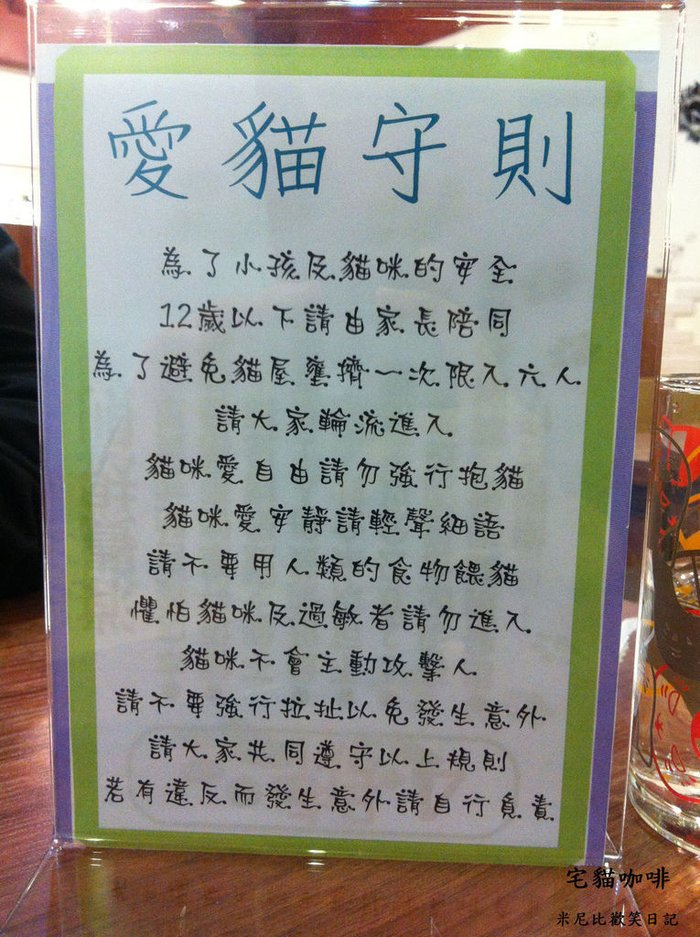 愛貓守則
為了小孩及貓咪的安全
12歲以下請由家長陪同
為了避免貓屋壅擠一次限入六人
請大家輪流進入
貓咪愛自由請勿強行抱貓
貓咪愛安靜請輕聲細語
請不要用人類的食物餵貓
懼怕貓咪及過敏者請勿進入
貓咪不會主動攻擊人
請不要強行拉扯以免發生意外
請大家共同遵守以上規則
若有違反而發生意外請自行負責
宅貓咖啡
米尼比歡笑日記